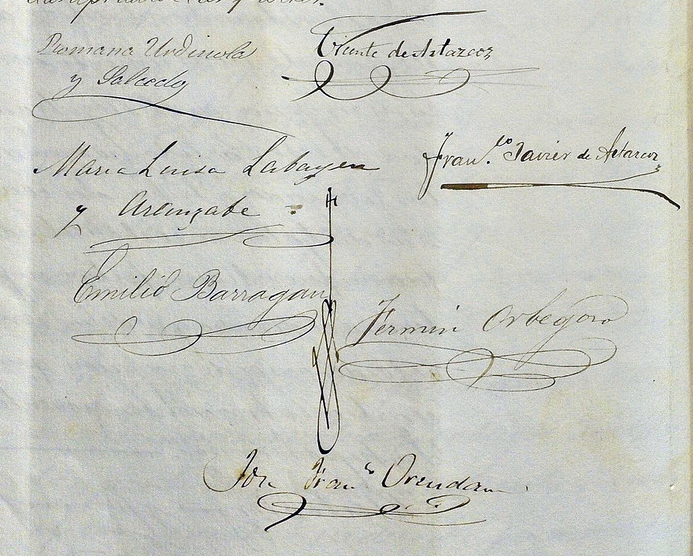 Romana Urdinola
y Salcedo
Vicente de Astarcoz
Maria Luisa Labayen
y Aranzabe
Fran.co Javier de Astarcoz
Emilio Barragan
Fermin Orbegozo
Jose Fran.co Orendain